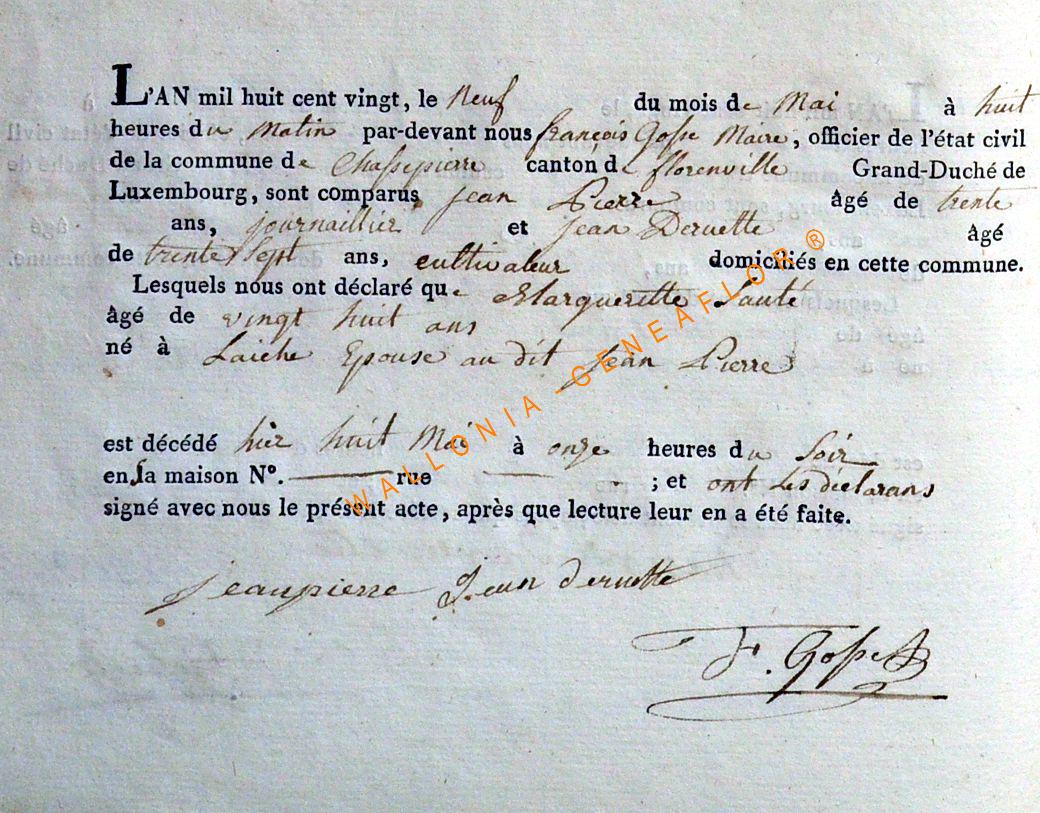 L'AN mil huit cent vingt, le Neuf du mois de Mai à huit
heures du Matin par-devant nous françois Gosse Maire, officier de l'état civil
de la commune de Chassepierre canton de florenville Grand-Duché de
Luxembourg, sont comparus jean Pierre âgé de trente
ans, journaillier et jean Deruette âgé
de trente Sept ans, cultivateur domiciliés en cette commune.
Lesquels nous ont déclaré que Margueritte Lauté
âgé de vingt huit ans
né à Laiche Epouse au dit Jean Pierre
est décédé hier huit Mai à onze heures du Soir
en sa maison N°. rue ; et ont les déclarans
signé avec nous le présent acte, après que lecture leur en a été faite.
jeanpierre Jean deruette
F. Gosse
WALLONIA-GENEAFLOR®